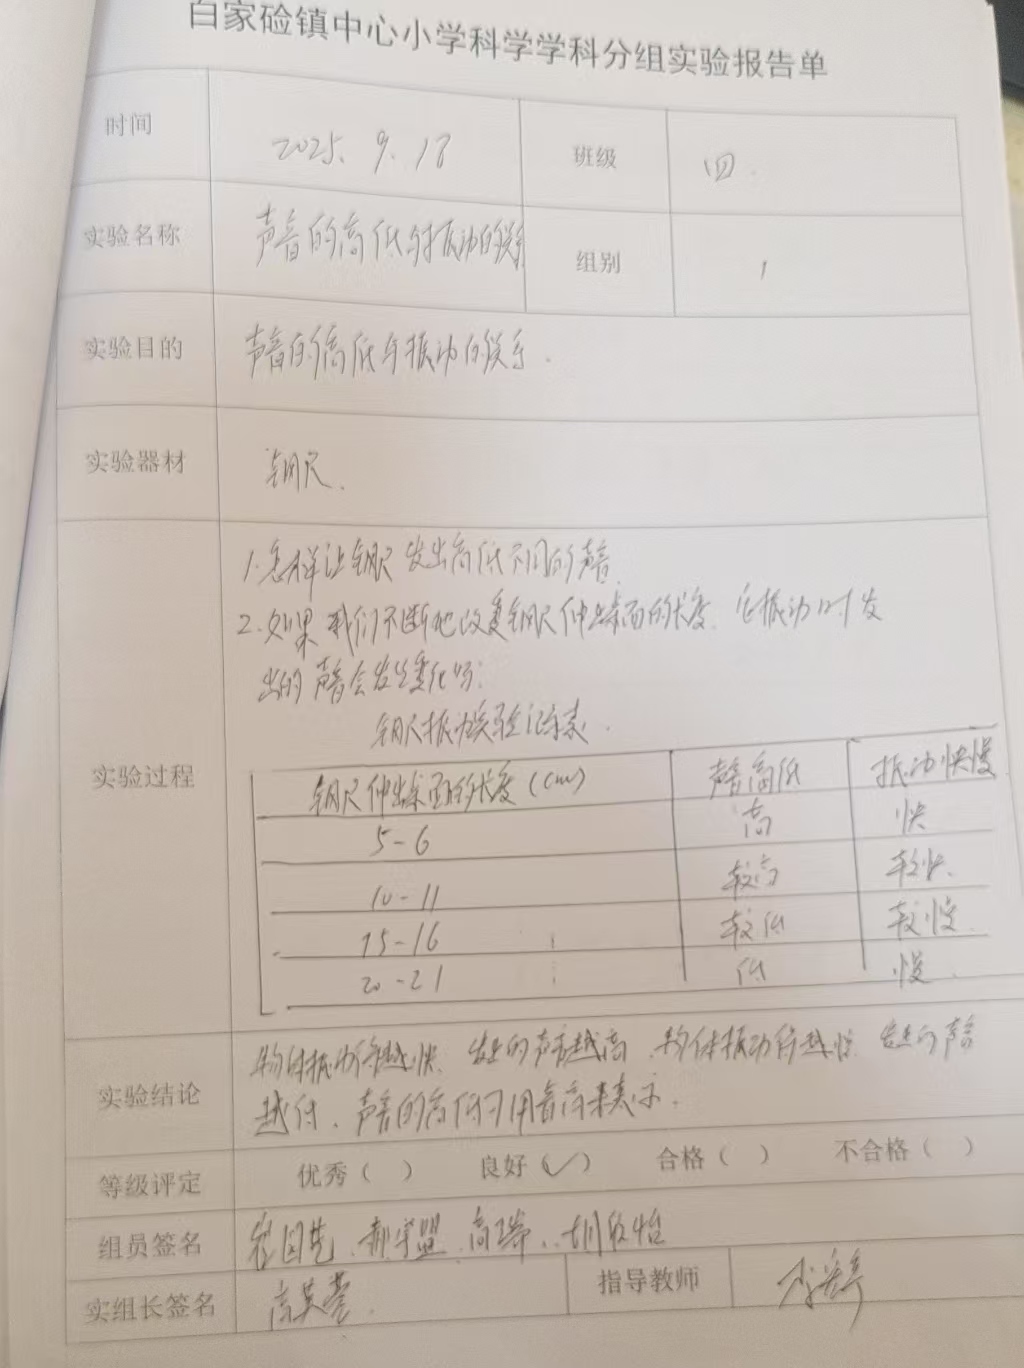 白家硷镇中心小学科学学科分组实验报告单
时间 2025. 9. 18 班级 四.
实验名称 声音的高低与振动的关系 组别 1
实验目的 声音的高低与振动的关系.
实验器材 钢尺.
1. 怎样让钢尺发出高低不同的声音
2. 如果我们不断地改变钢尺伸出桌面的长度. 它振动时发
出的声音会发生变化吗:
钢尺振动实验记录表.
实验过程
钢尺伸出桌面的长度 (cm) 声音高低 振动快慢
5-6 高 快
10-11 较高 较快.
15-16 较低 较慢.
20-21 低 慢.
物体振动得越快. 发出的声音越高. 物体振动得越慢. 发出的声音
实验结论
越低. 声音的高低可用音高来表示.
等级评定 优秀( ) 良好(✓) 合格( ) 不合格( )
组员签名 高瑞
实组长签名 高英 指导教师